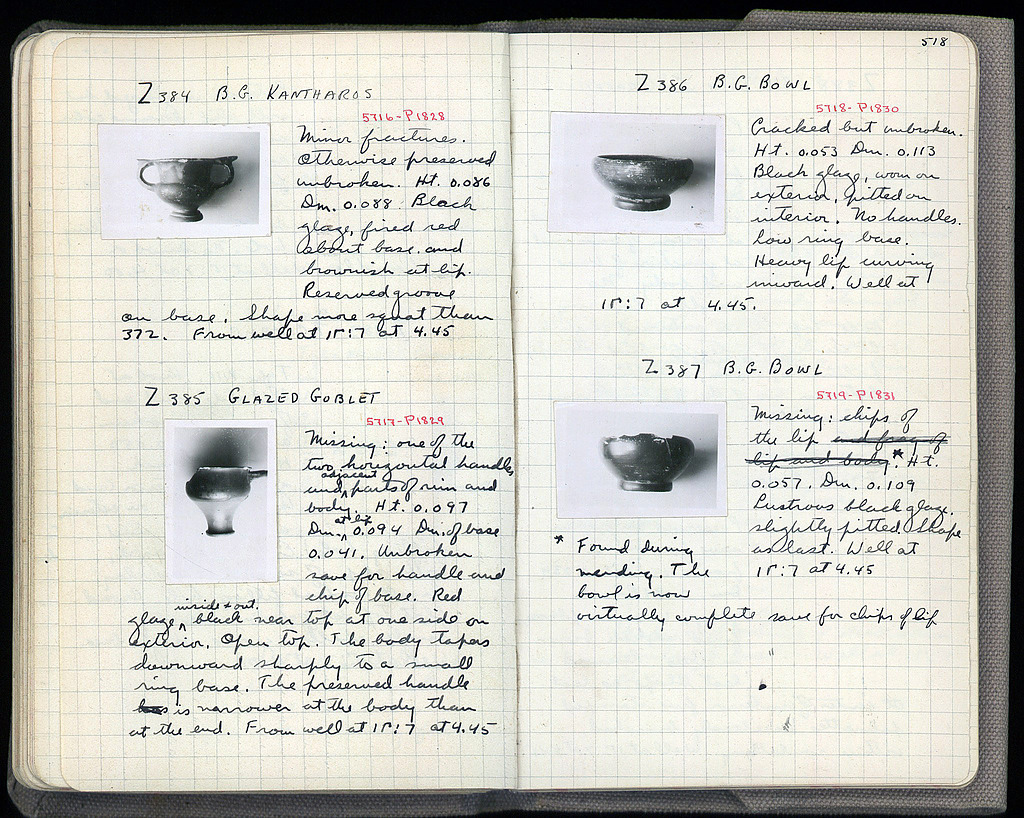 Z 384 B.G. KANTHAROS
5716-P1828
Minor fractures.
Otherwise preserved
unbroken. Ht. 0.086
Dm. 0.088. Black
glaze, fired red
about base and
brownish at lip.
Reserved groove
on base. Shape more squat than
372. From well at ΙΓ:7 at 4.45
Z 385 GLAZED GOBLET
5717-P1829
Missing: one of the
two horizontal handles
adjacent
and parts of rim and
body. Ht. 0.097
at lip
Dm. 0.094 Dm. of base
0.041. Unbroken
save for handle and
chip of base. Red
inside + out.
glaze, black near top at one side on
exterior. Open top. The body tapers
downward sharply to a small
ring base. The preserved handle
is narrower at the body than
at the end. From well at ΙΓ:7 at 4.45
518
Z 386 B.G. BOWL
5718-P1830
Cracked but unbroken.
Ht. 0.053 Dm. 0.113
Black glaze, worn on
exterior, pitted on
interior. No handles.
Low ring base.
Heavy lip curving
inward. Well at
ΙΓ:7 at 4.45.
Z 387 B.G. BOWL
5719-P1831
Missing: chips of
the lip and frag of
lip and body.* Ht.
0.057. Dm. 0.109
Lustrous black glaze,
slightly pitted. Shape
as last. Well at
ΙΓ:7 at 4.45
* Found during
mending. The
bowl is now
virtually complete save for chips of lip